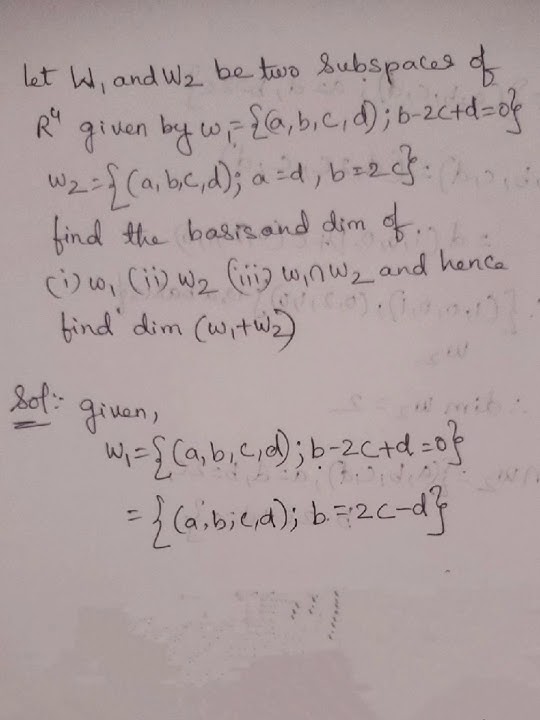 let W₁ and W2 be two subspaces of
R⁴ given by w₁={(a,b,c,d); b-2c+d=0}
w₂={(a,b,c,d); a=d, b=2c}.
find the basis and dim of.
(i) w₁ (ii) w2 (iii) w₁∩w2 and hence
find dim (w₁+w2)
Sol:- given,
w₁={(a,b,c,d); b-2c+d=0}
={(a,b,c,d); b=2c-d}